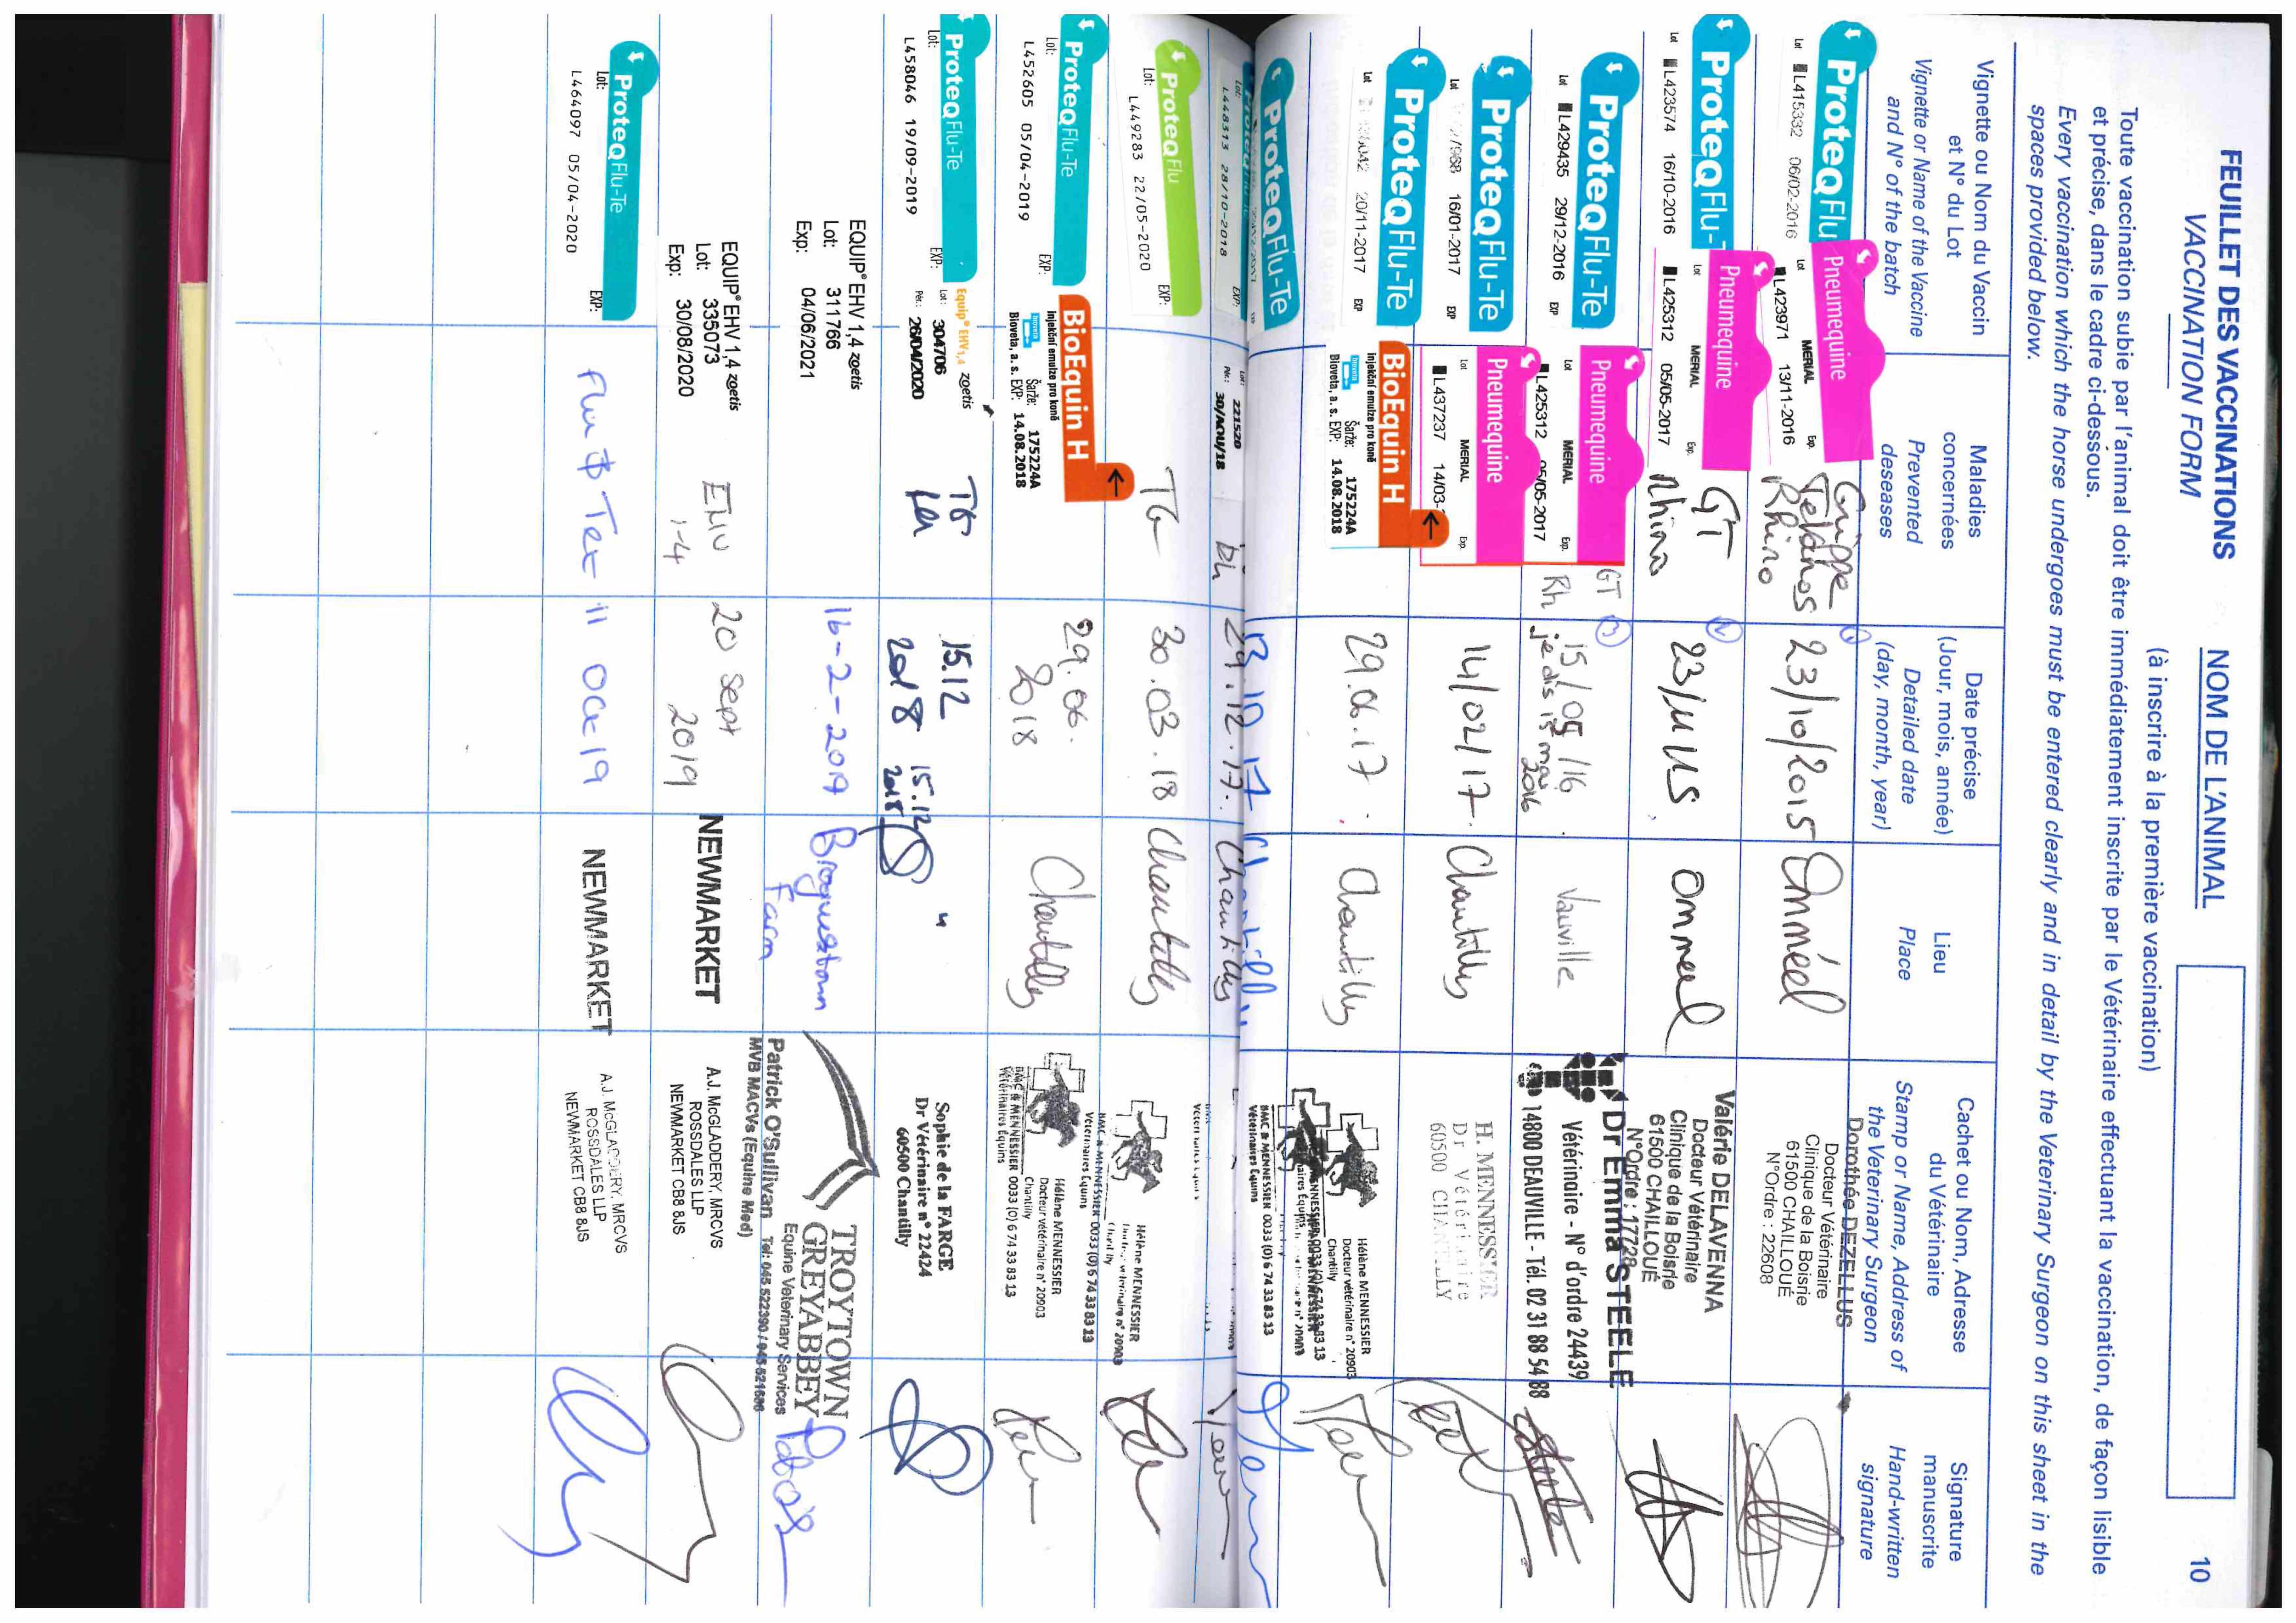 FEUILLET DES VACCINATIONS
NOM DE L'ANIMAL
10
VACCINATION FORM
(à inscrire à la première vaccination)
Toute vaccination subie par l'animal doit être immédiatement inscrite par le Vétérinaire effectuant la vaccination, de façon lisible
et précise, dans le cadre ci-dessous.
Every vaccination which the horse undergoes must be entered clearly and in detail by the Veterinary Surgeon on this sheet in the
spaces provided below.
Vignette ou Nom du Vaccin
et N° du Lot
Vignette or Name of the Vaccine
and N° of the batch
Maladies
concernées
Prevented
deseases
Date précise
(Jour, mois, année)
Detailed date
(day, month, year)
Lieu
Place
Cachet ou Nom, Adresse
du Vétérinaire
Stamp or Name, Address of
the Veterinary Surgeon
Signature
manuscrite
Hand-written
signature
ProteqFlu
Lot L415332 06/02-2016
Pneumequine
Lot MERIAL Exp.
L423971 13/11-2016
Grippe
Tetanos
Rhino
1
23/10/2015
Omméel
Dorothée DEZELLUS
Docteur Vétérinaire
Clinique de la Boisrie
61500 CHAILLOUÉ
N°Ordre : 22608
ProteqFlu-
Lot L423574 16/10-2016
Pneumequine
Lot MERIAL Exp.
L425312 05/05-2017
GT
Rhino
2
23/11/15
Ommeel
Valérie DELAVENNA
Docteur Vétérinaire
Clinique de la Boisrie
61500 CHAILLOUÉ
N°Ordre : 17728
ProteqFlu-Te
Lot L429435 29/12-2016 EXP
Pneumequine
Lot MERIAL Exp.
L425312 05/05-2017
GT
Rh
3
15/05/16
je dis 15 mai
2016
Vauville
Dr Emma STEELE
Vétérinaire - N° d'ordre 24439
14800 DEAUVILLE - Tél. 02 31 88 54 88
ProteqFlu-Te
Lot 16/01-2017 EXP
Pneumequine
Lot MERIAL Exp.
L437237 14/03-
14/02/17.
Chantilly
H. MENNESSIER
Dr Vétérinaire
60500 CHANTILLY
ProteqFlu-Te
Lot 20/11-2017 EXP
BioEquin H
injekční emulze pro koně
Bioveta Šarže: 175224A
Bioveta, a. s. EXP: 14.08.2018
29.06.17
Chantilly
Hélène MENNESSIER
Docteur vétérinaire n° 20903
Chantilly
BMC & MENNESSIER 0033 (0) 6 74 33 83 13
Vétérinaires Equins
ProteqFlu-Te
13 10 17
Chantilly
Lot: L448313 28/10-2018 EXP:
Lot: 221520
Pér.: 30/NOV/18
Rh
29.12.17.
Chantilly
ProteqFlu
Lot: EXP:
L449283 22/05-2020
TG
30.03.18
Chantilly
Hélène MENNESSIER
Docteur vétérinaire n° 20903
Chantilly
BMC & MENNESSIER 0033 (0) 6 74 33 83 13
Vétérinaires Equins
ProteqFlu-Te
Lot: EXP:
L452605 05/04-2019
BioEquin H
injekční emulze pro koně
Bioveta Šarže: 175224A
Bioveta, a. s. EXP: 14.08.2018
29.06.
2018
Chantilly
Hélène MENNESSIER
Docteur vétérinaire n° 20903
Chantilly
BMC & MENNESSIER 0033 (0) 6 74 33 83 13
Vétérinaires Equins
ProteqFlu-Te
Lot: EXP:
L458046 19/09-2019
Equip® EHV1,4 zoetis
Lot: 304706
Pér.: 26/04/2020
TG
15.12
2018
15.12
2018
"
Sophie de la FARGE
Dr Vétérinaire n° 22424
60500 Chantilly
EQUIP® EHV 1,4 zoetis
Lot: 311766
Exp: 04/06/2021
16-2-2019
Broguestown
Farm
TROYTOWN
GREYABBEY
Equine Veterinary Services
Patrick O'Sullivan Tel: 045 522390 / 045 521686
MVB MACVs (Equine Med)
EQUIP® EHV 1,4 zoetis
Lot: 335073
Exp: 30/08/2020
EHV
1-4
20 Sept
2019
NEWMARKET
A.J. McGLADDERY, MRCVS
ROSSDALES LLP
NEWMARKET CB8 8JS
ProteqFlu-Te
Lot: EXP:
L464097 05/04-2020
Flu & Tet
11 Oct 19
NEWMARKET
A.J. McGLADDERY, MRCVS
ROSSDALES LLP
NEWMARKET CB8 8JS